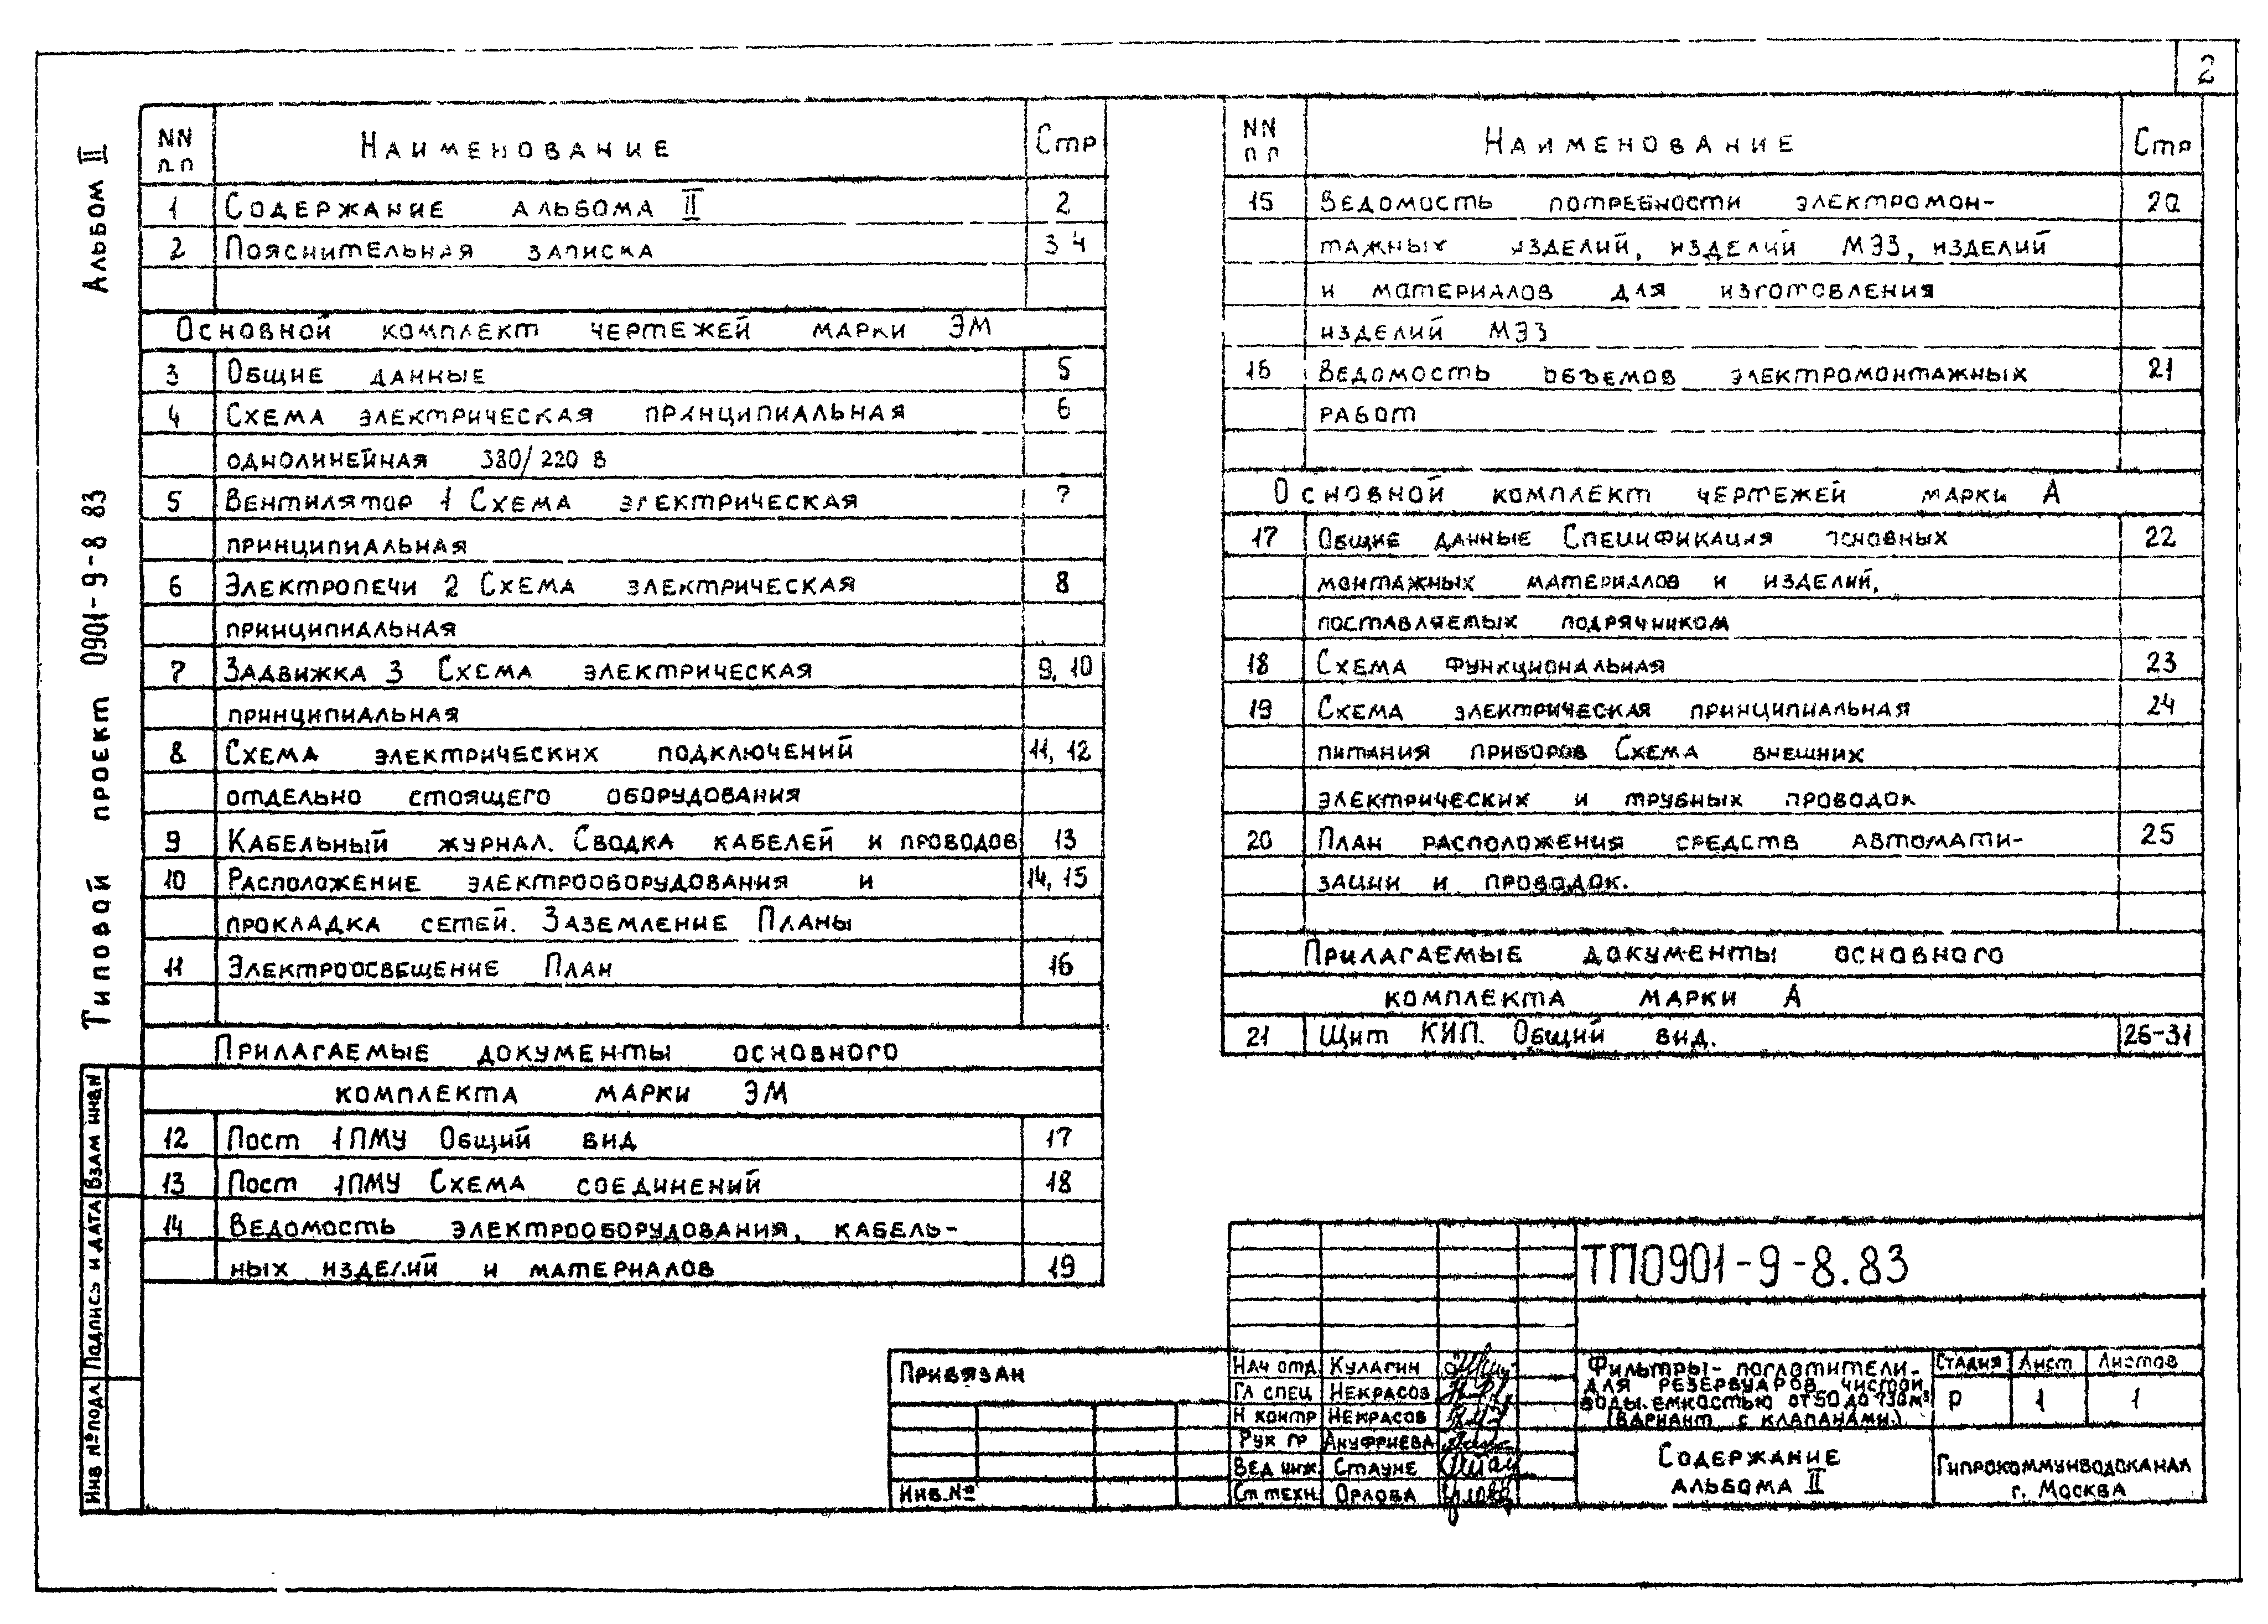 2
Альбом II
Типовой проект 0901-9-8 83
NN п.п Наименование Стр
1 Содержание альбома II 2
2 Пояснительная записка 3 4
Основной комплект чертежей марки ЭМ
3 Общие данные 5
4 Схема электрическая принципиальная 6
однолинейная 380/220 В
5 Вентилятор 1 Схема электрическая 7
принципиальная
6 Электропечи 2 Схема электрическая 8
принципиальная
7 Задвижка 3 Схема электрическая 9, 10
принципиальная
8 Схема электрических подключений 11, 12
отдельно стоящего оборудования
9 Кабельный журнал. Сводка кабелей и проводов 13
10 Расположение электрооборудования и 14, 15
прокладка сетей. Заземление Планы
11 Электроосвещение План 16
Прилагаемые документы основного
комплекта марки ЭМ
12 Пост 1ПМУ Общий вид 17
13 Пост 1ПМУ Схема соединений 18
14 Ведомость электрооборудования, кабель-
ных изделий и материалов 19
NN п п Наименование Стр
15 Ведомость потребности электромон- 20
тажных изделий, изделий МЭЗ, изделий
и материалов для изготовления
изделий МЭЗ
16 Ведомость объемов электромонтажных 21
работ
Основной комплект чертежей марки А
17 Общие данные Спецификация основных 22
монтажных материалов и изделий,
поставляемых подрячником
18 Схема функциональная 23
19 Схема электрическая принципиальная 24
питания приборов Схема внешних
электрических и трубных проводок
20 План расположения средств автомати- 25
зации и проводок.
Прилагаемые документы основного
комплекта марки А
21 Щит КИП. Общий вид. 26-31
Инв № подл Подпись и дата Взам инвN
Привязан
Инв.№
Нач отд Кулагин
Гл спец Некрасов
Н контр Некрасов
Рук гр Ануфриева
Вед инж. Стауне
Ст техн Орлова
ТП0901-9-8.83
Фильтры-поглотители
для резервуаров чистой
воды емкостью от 50 до м³
(вариант с клапанами)
Стадия Лист Листов
Р 1 1
Содержание
альбома II
Гипрокоммунводоканал
г. Москва